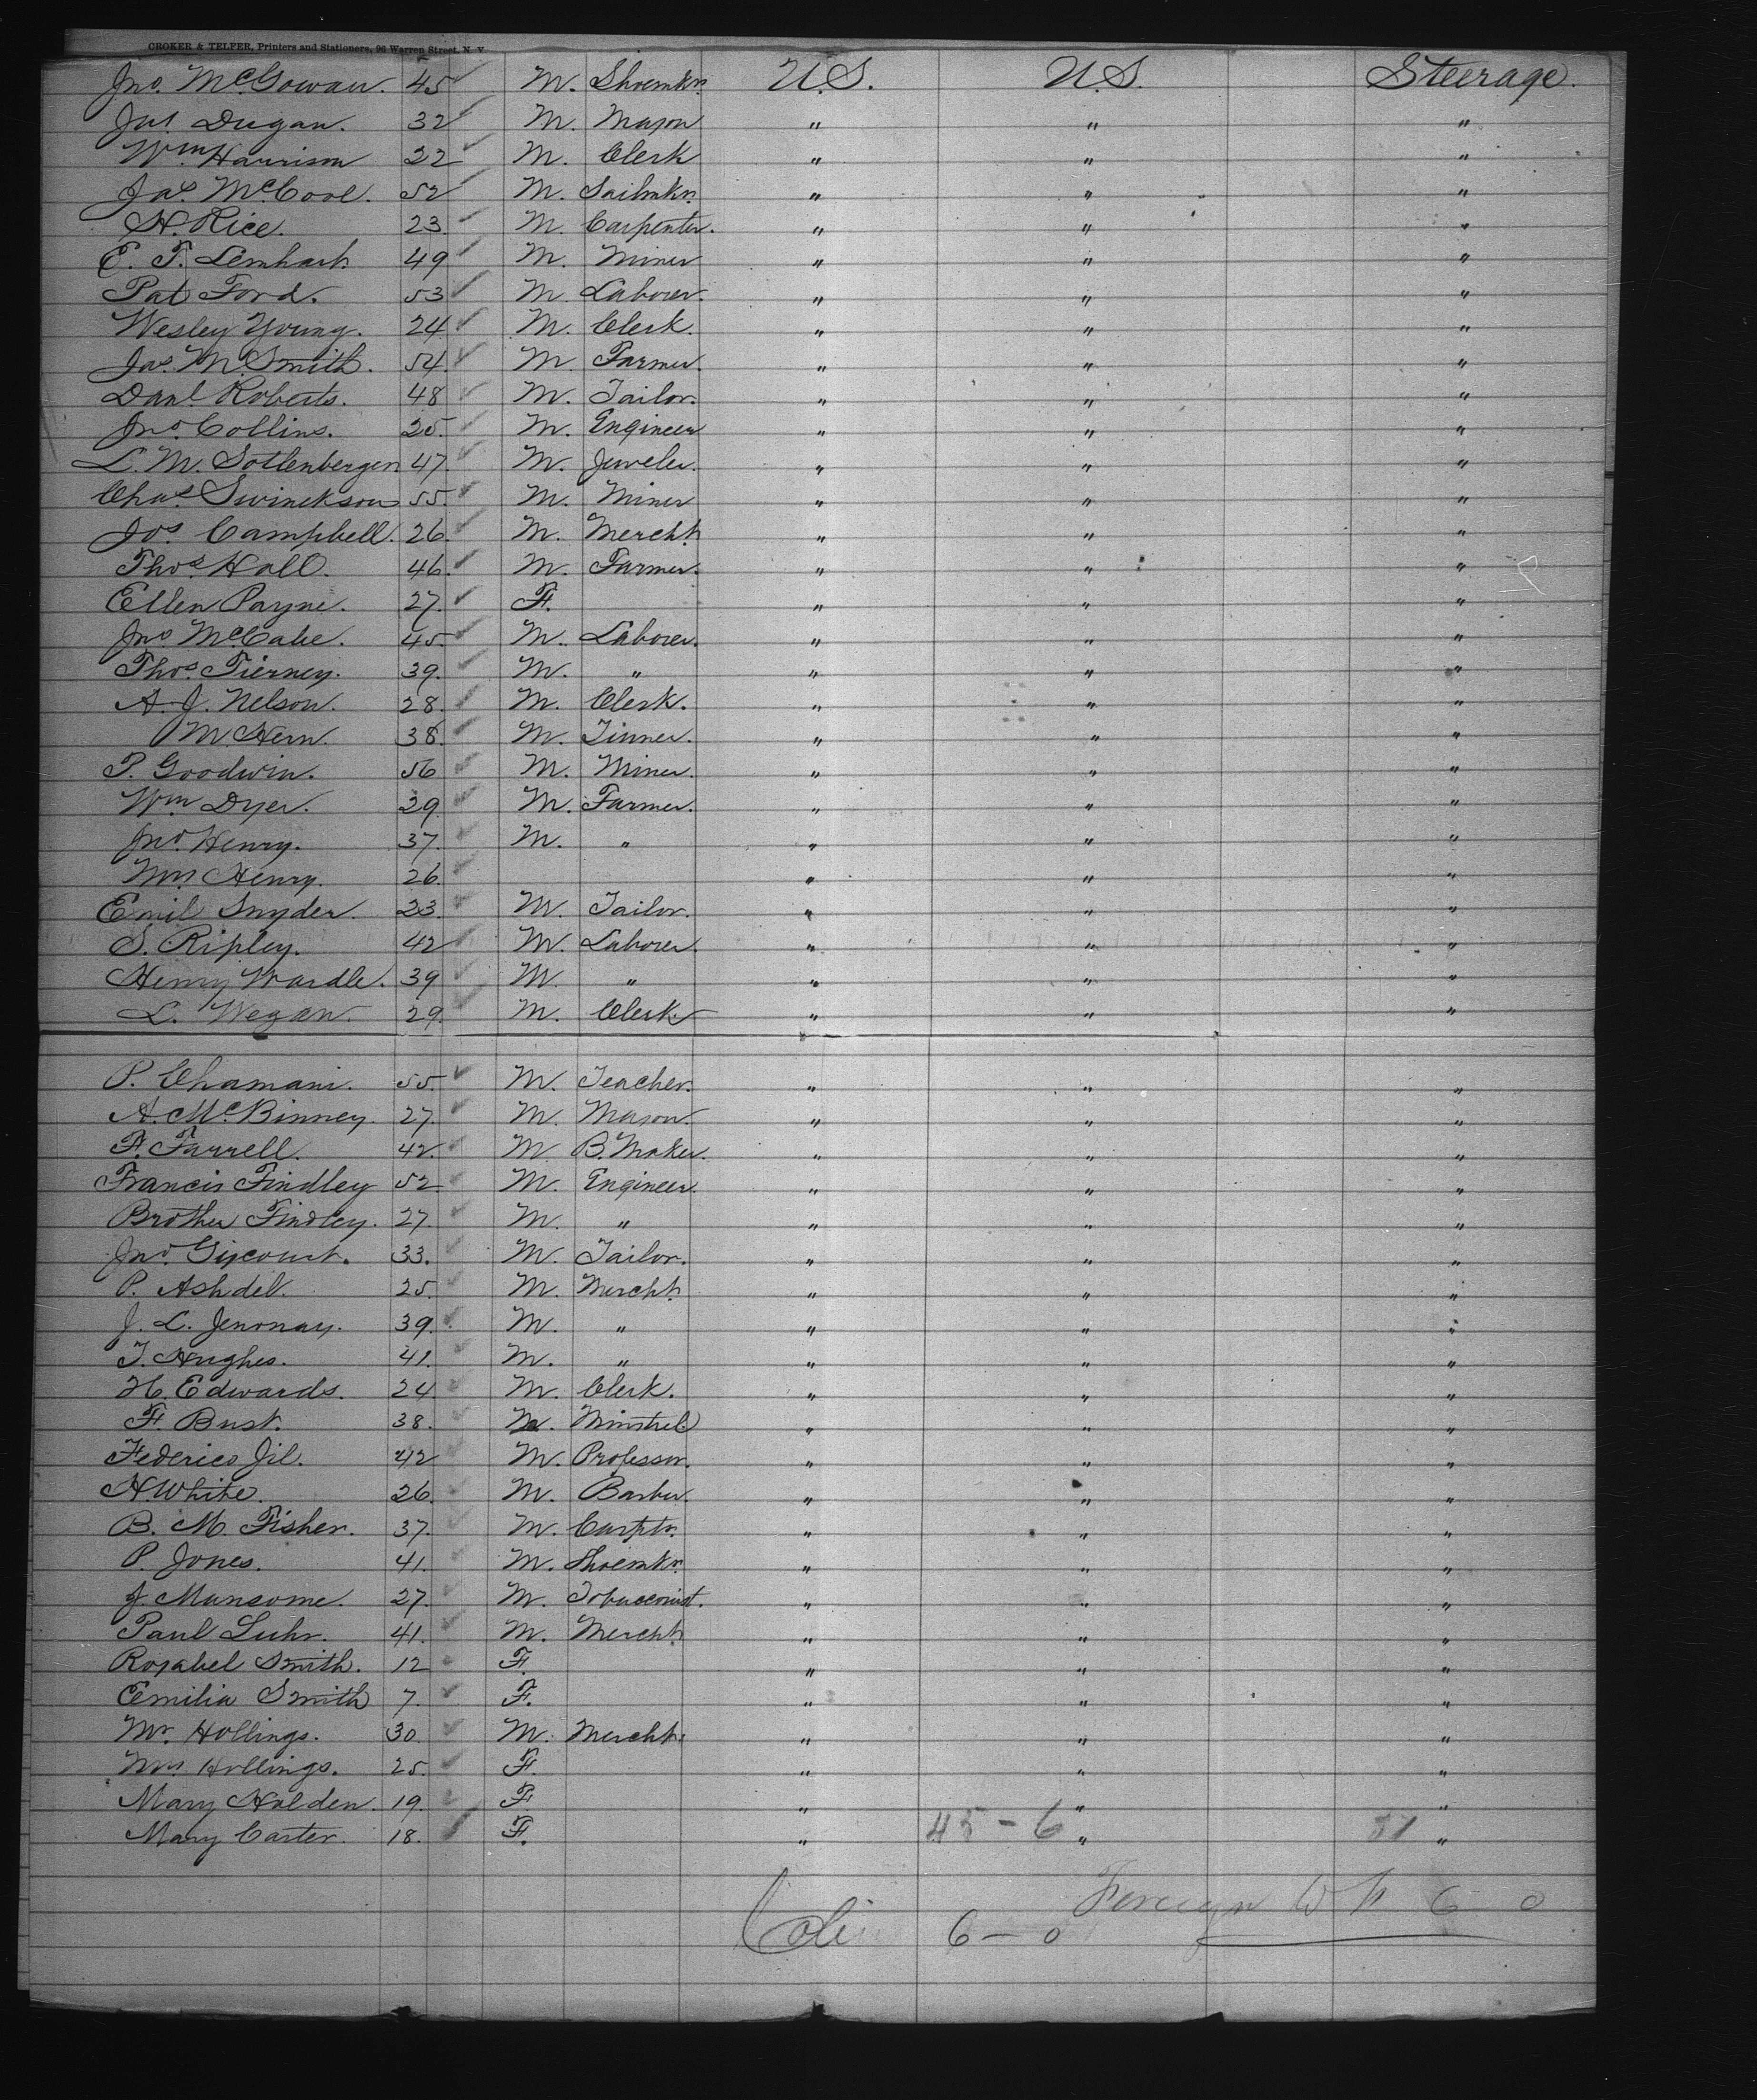 CROKER & TELFER, Printers and Stationers, 96 Warren Street, N. Y.
Jno. McGowan. 45 M. Shoemkr. U.S. U.S. Steerage.
Jas. Dugan. 32 M. Mason " " "
Wm. Harrison 22 M. Clerk " " "
Jas. McCool. 52 M. Sailmkr. " " "
H. Rice. 23. M. Carpenter. " " "
E. F. Lenhart. 49 M. Miner " " "
Pat Ford. 53 M. Laborer. " " "
Wesley Young. 24 M. Clerk. " " "
Jas. M. Smith. 54. M. Farmer. " " "
Danl. Roberts. 48 M. Tailor. " " "
Jno. Collins. 25. M. Engineer " " "
L. M. Sottenberger. 47. M. Jeweler. " " "
Chas. Swinckson 55. M. Miner " " "
Jos Campbell. 26. M. Mercht. " " "
Thos. Hall. 46. M. Farmer. " " "
Ellen Payne. 27. F. " " "
Jno McCabe. 45. M. Laborer. " " "
Thos. Tierney. 39. M. " " " "
A. J. Nelson. 28. M. Clerk. " " "
M. Hern. 38. M. Tinner. " " "
P. Goodwin. 56 M. Miner. " " "
Wm Dyer. 29. M. Farmer. " " "
Jno. Henry. 37. M. " " " "
Mrs Henry. 26. " " "
Emil Snyder. 23. M. Tailor. " " "
S. Ripley. 42 M. Laborer. " " "
Henry Wardle. 39 M. " " " "
L. Wegan. 29. M. Clerk. " " "
P. Chamani. 55. M. Teacher. " " "
A. McBinney. 27. M. Mason. " " "
F. Farrell. 42. M. B. Maker. " " "
Francis Findley 52. M. Engineer. " " "
Brother Findley. 27. M. " " " "
Jno. 33. M. Tailor. " " "
P. Ashdel. 25. M. Mercht. " " "
J. L. Jenonay. 39. M. " " " "
T. Hughes. 41. M. " " " "
H. Edwards. 24 M. Clerk. " " "
F. Bust. 38. M. Minstrel " " "
Federico Jil. 42 M. Professor. " " "
H. White. 26. M. Barber. " " "
B. M. Fisher. 37. M. Carptr. " " "
P. Jones. 41. M. Shoemkr. " " "
J. Mansome. 27. M. Tobacconist. " " "
Paul Luhr. 41. M. Mercht. " " "
Rosabel Smith. 12 F. " " "
Emilia Smith 7. F. " " "
Mr. Hollings. 30. M. Mercht. " " "
Mrs Hollings. 25. F. " " "
Mary Holden. 19. F " " "
Mary Carter. 18. F. " 45 - 6 " 51 "
Foreign 6 0
6 - 0